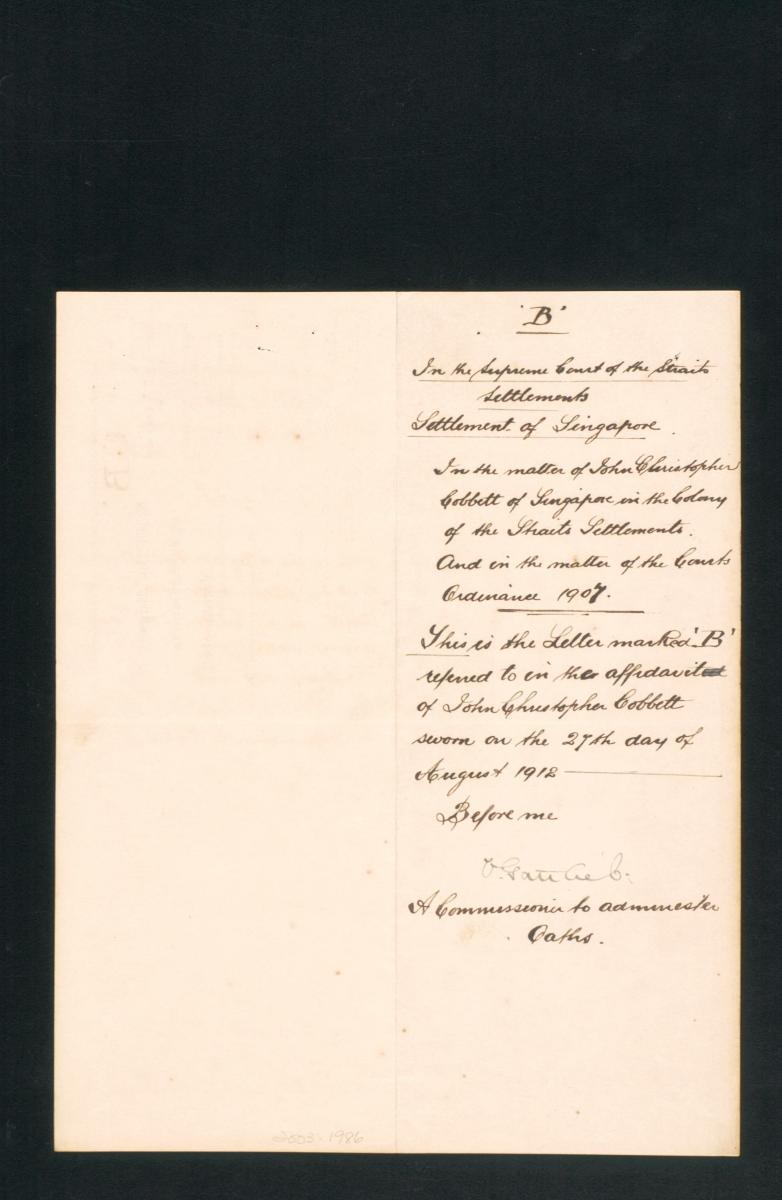 'B'
In the Supreme Court of the Straits
Settlements
Settlement of Singapore.
In the matter of John Christopher
Cobbett of Singapore in the Colony
of the Straits Settlements.
And in the matter of the Courts
Ordinance 1907.
This is the Letter marked 'B'
referred to in the affidavit
of John Christopher Cobbett
sworn on the 27th day of
August 1912
Before me
A Commissioner to administer
Oaths.
2003-1986